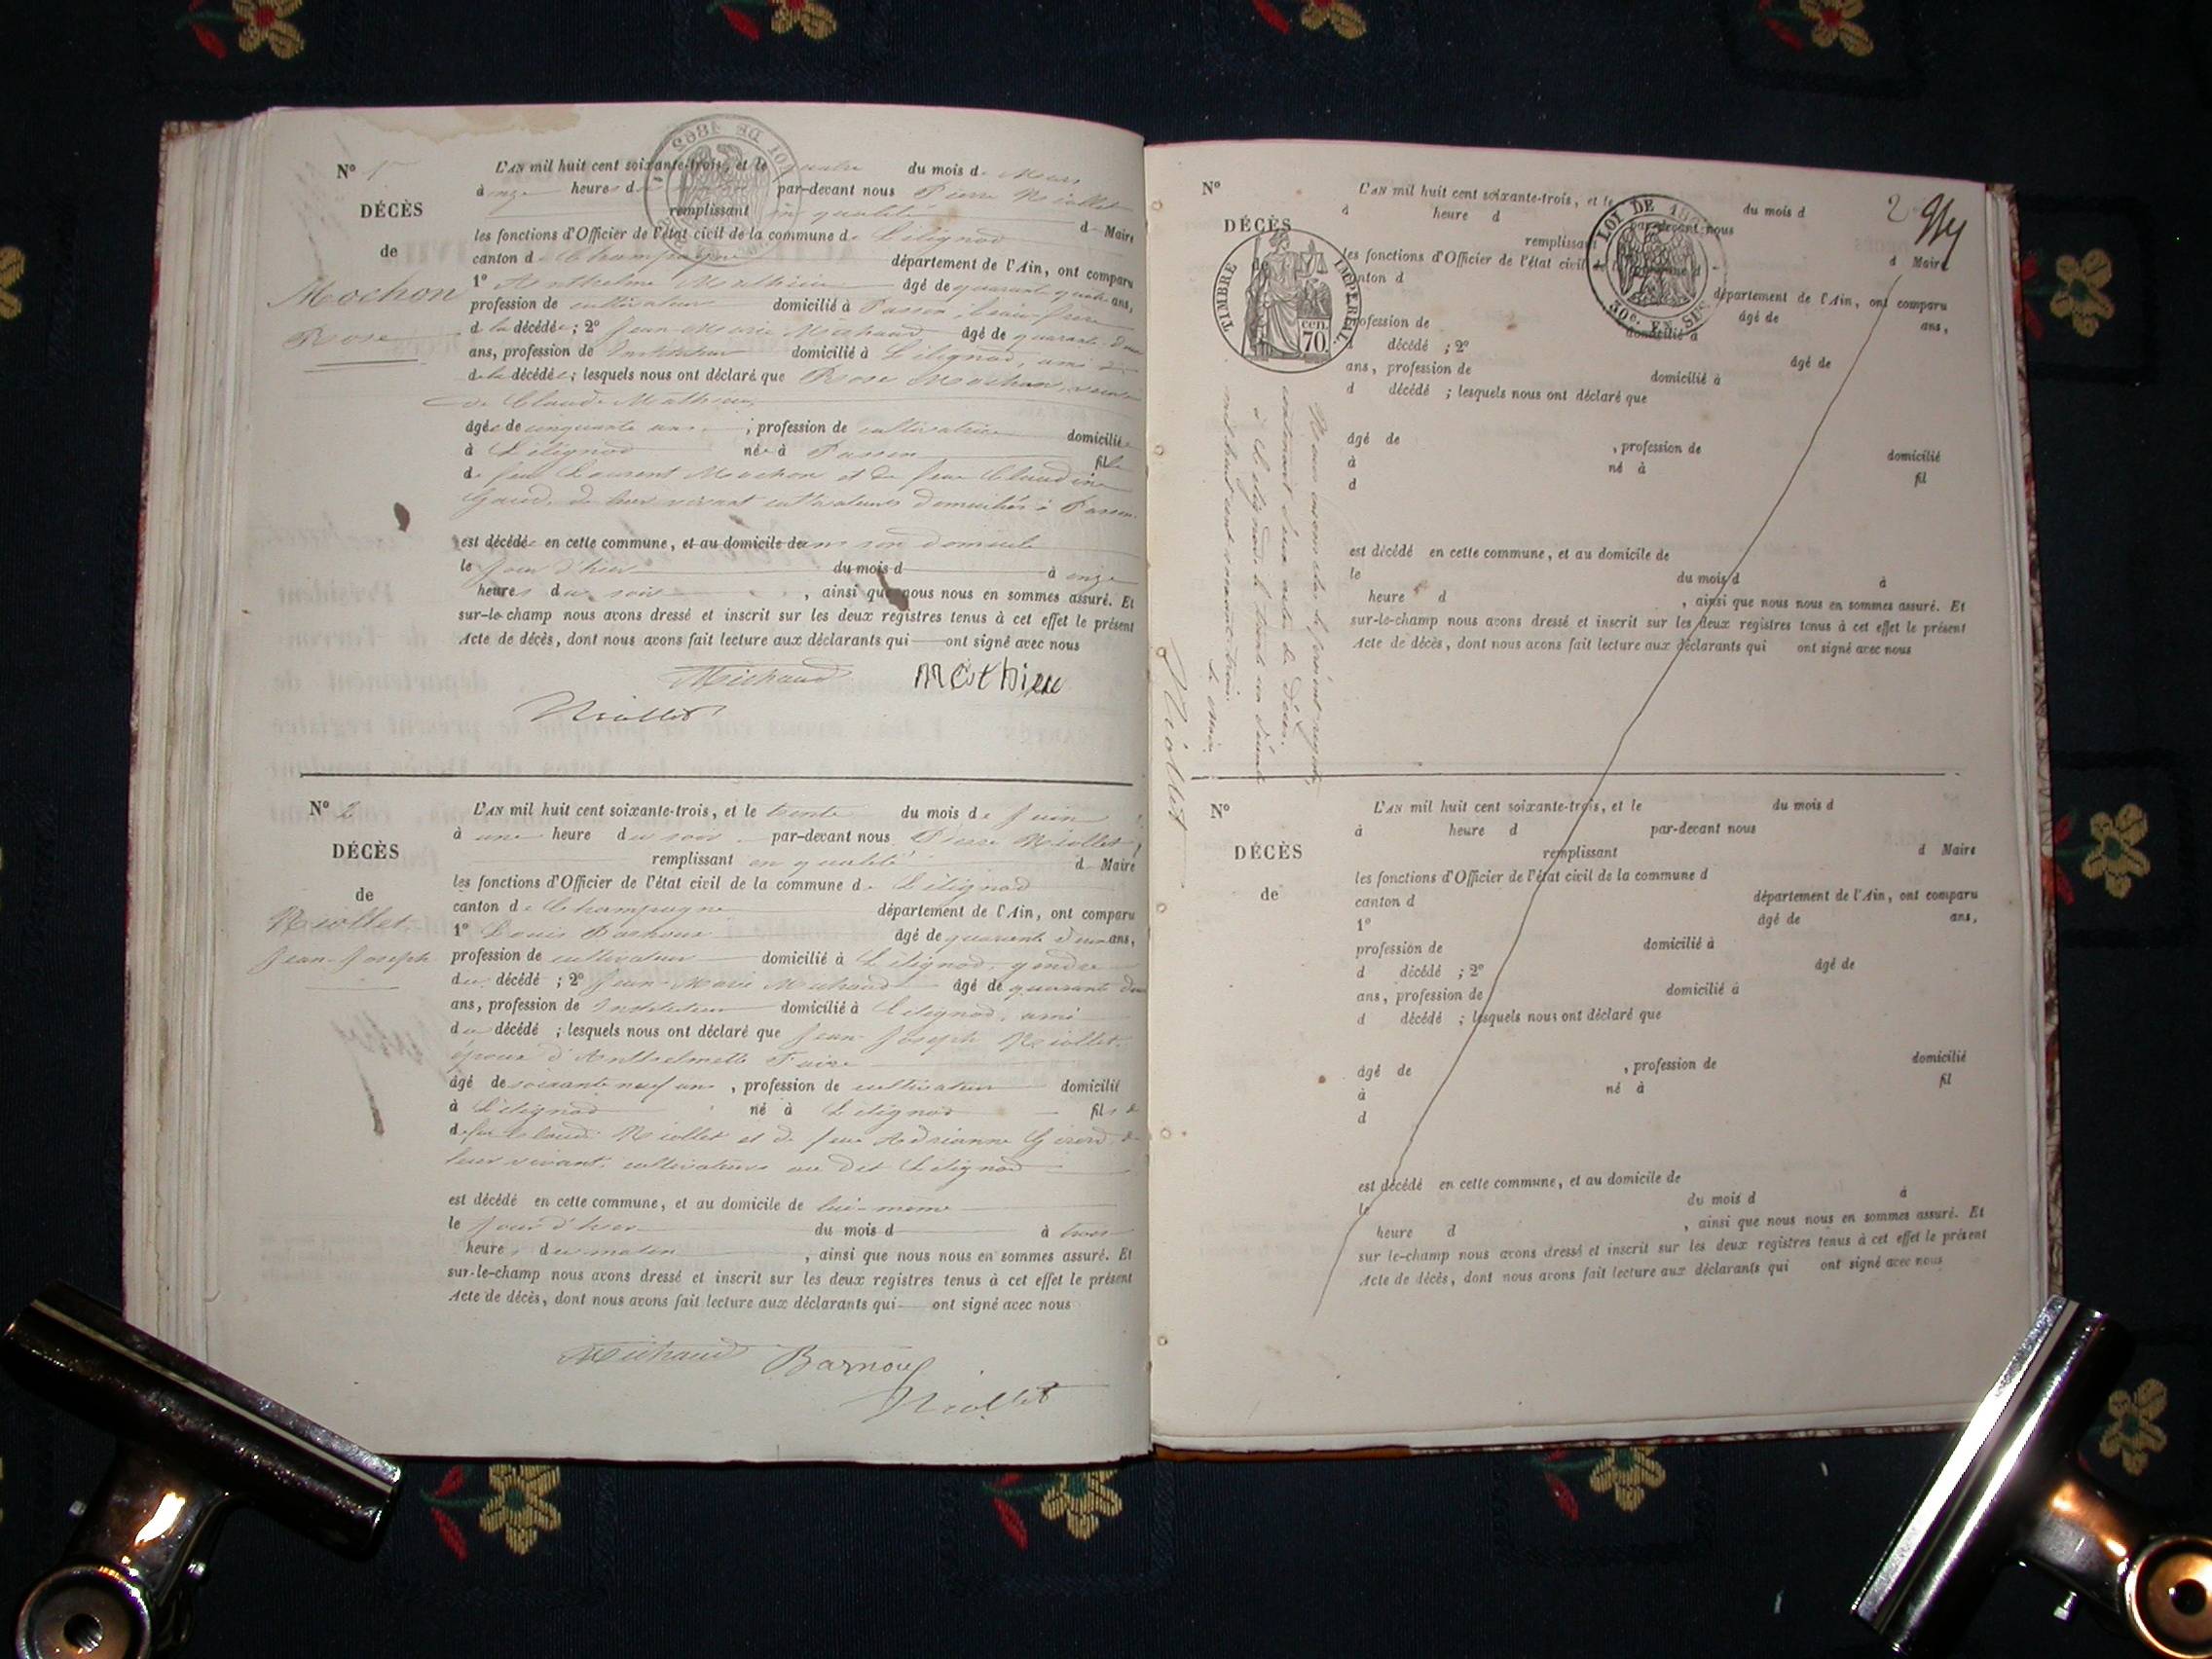 N° 1
DÉCÈS
de
Mochon
Rose
L'AN mil huit cent soixante-trois, et le quatre du mois de Mars
à onze heures du par-devant nous Pierre Niollet
remplissant en qualité d Maire
les fonctions d'Officier de l'état civil de la commune de Lilignod
canton de Champagne département de l'Ain, ont comparu
1° Anthelme Mathieu âgé de quarante quatre ans,
profession de cultivateur domicilié à Passin, beau-frère
d la décédée ; 2° Jean-Marie Michaud âgé de quarante deux
ans, profession de Instituteur domicilié à Lilignod, ami
de la décédée ; lesquels nous ont déclaré que Rose Mochon, veuve
de Claude Mathieu
âgée de cinquante ans , profession de cultivatrice domicilié
à Lilignod née à Passin fille
de feu Laurent Mochon et de feue Claudine
de leur vivant cultivateurs domiciliés à Passin
est décédée en cette commune, et au domicile de dans son domicile
le jour d'hier du mois d à onze
heures du soir , ainsi que nous nous en sommes assuré. Et
sur-le-champ nous avons dressé et inscrit sur les deux registres tenus à cet effet le présent
Acte de décès, dont nous avons fait lecture aux déclarants qui ont signé avec nous
Michaud mathieu
Niollet
N° 2
DÉCÈS
de
Niollet
Jean-Joseph
L'AN mil huit cent soixante-trois, et le trente du mois de Juin
à une heure du soir par-devant nous Pierre Niollet
remplissant en qualité d Maire
les fonctions d'Officier de l'état civil de la commune de Lilignod
canton de Champagne département de l'Ain, ont comparu
1° Louis Barnoux âgé de quarante deux ans,
profession de cultivateur domicilié à Lilignod, gendre
du décédé ; 2° Jean-Marie Michaud âgé de quarante deux
ans, profession de Instituteur domicilié à Lilignod, ami
du décédé ; lesquels nous ont déclaré que Jean-Joseph Niollet,
époux d'Anthelmette
âgé de soixante neuf ans , profession de cultivateur domicilié
à Lilignod né à Lilignod fils
de feu Claude Niollet et de feue Adrianne de
leur vivant cultivateurs au dit Lilignod
est décédé en cette commune, et au domicile de lui-même
le jour d'hier du mois d à trois
heures du matin , ainsi que nous nous en sommes assuré. Et
sur-le-champ nous avons dressé et inscrit sur les deux registres tenus à cet effet le présent
Acte de décès, dont nous avons fait lecture aux déclarants qui ont signé avec nous
Michaud Barnoux
Niollet
2
N°
DÉCÈS
TIMBRE IMPÉRIAL
70 cen.
LOI DE 1862
L'AN mil huit cent soixante-trois, et le du mois d
à heure d par-devant nous
remplissant d Maire
les fonctions d'Officier de l'état civil de la commune d
canton d département de l'Ain, ont comparu
âgé de ans,
profession de domicilié à
décédé ; 2° âgé de
ans, profession de domicilié à
d décédé ; lesquels nous ont déclaré que
âgé de , profession de domicilié
à né à fil
d
est décédé en cette commune, et au domicile de
le du mois d à
heure d , ainsi que nous nous en sommes assuré. Et
sur-le-champ nous avons dressé et inscrit sur les deux registres tenus à cet effet le présent
Acte de décès, dont nous avons fait lecture aux déclarants qui ont signé avec nous
Nous avons clos le présent registre,
contenant deux actes de décès,
à Lilignod, le trente un décembre
mil huit cent soixante trois.
Le Maire
Niollet
N°
DÉCÈS
de
L'AN mil huit cent soixante-trois, et le du mois d
à heure d par-devant nous
remplissant d Maire
les fonctions d'Officier de l'état civil de la commune d
canton d département de l'Ain, ont comparu
1° âgé de ans,
profession de domicilié à
d décédé ; 2° âgé de
ans, profession de domicilié à
d décédé ; lesquels nous ont déclaré que
âgé de , profession de domicilié
à né à fil
d
est décédé en cette commune, et au domicile de
le du mois d à
heure d , ainsi que nous nous en sommes assuré. Et
sur le-champ nous avons dressé et inscrit sur les deux registres tenus à cet effet le présent
Acte de décès, dont nous avons fait lecture aux déclarants qui ont signé avec nous